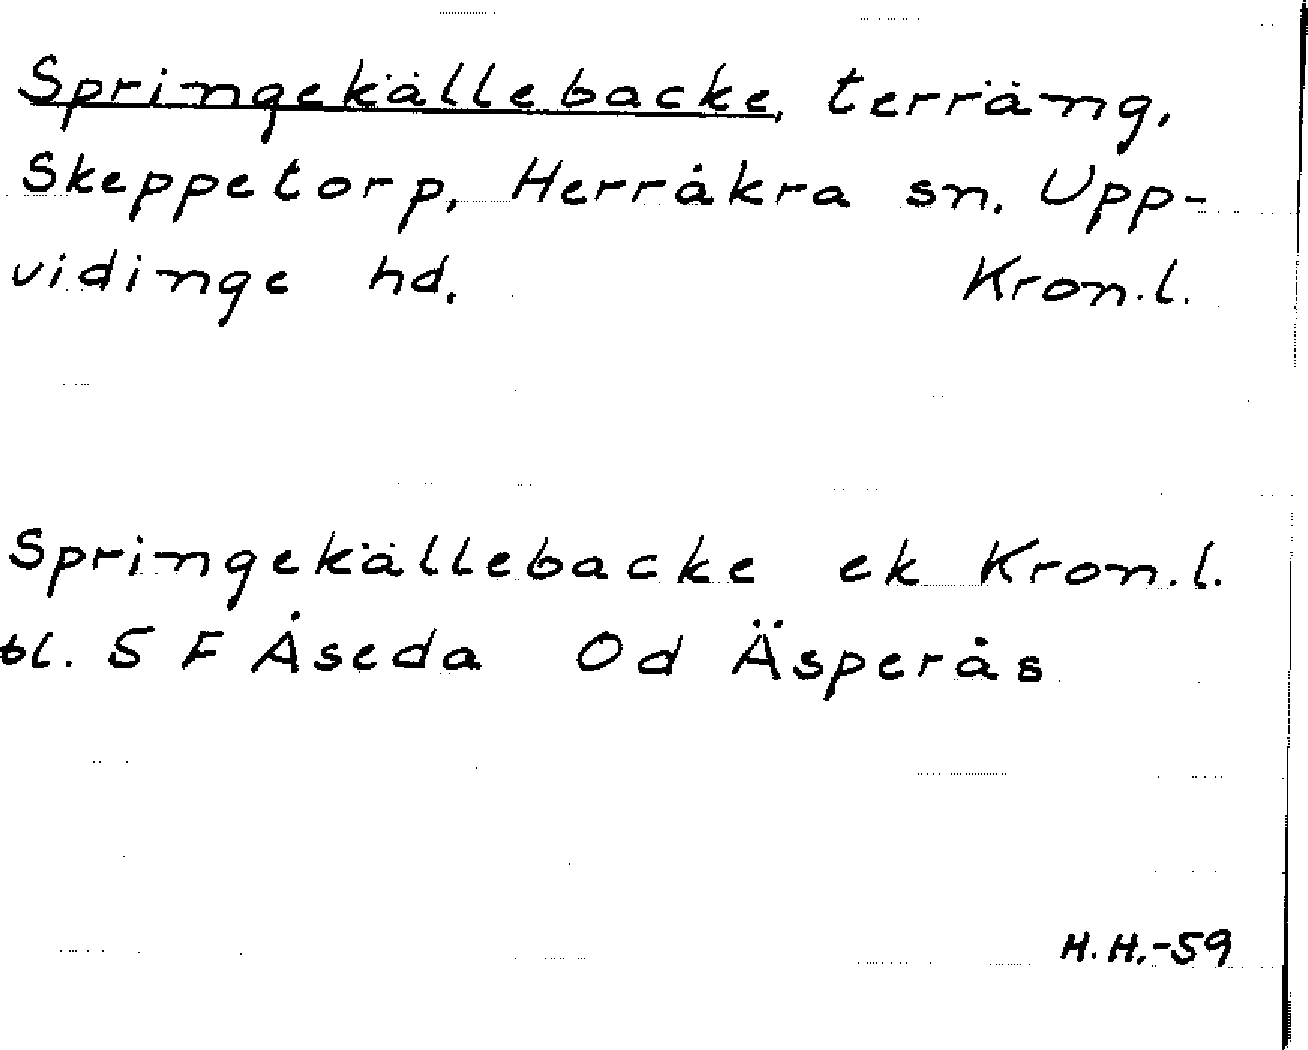 Springekällebacke, terräng,
Skeppetorp, Herråkra sn. Upp-
vidinge hd. Kron.l.
Springekällebacke ek Kron.l.
bl. 5 F Åseda Od Äsperås
H.H.-59